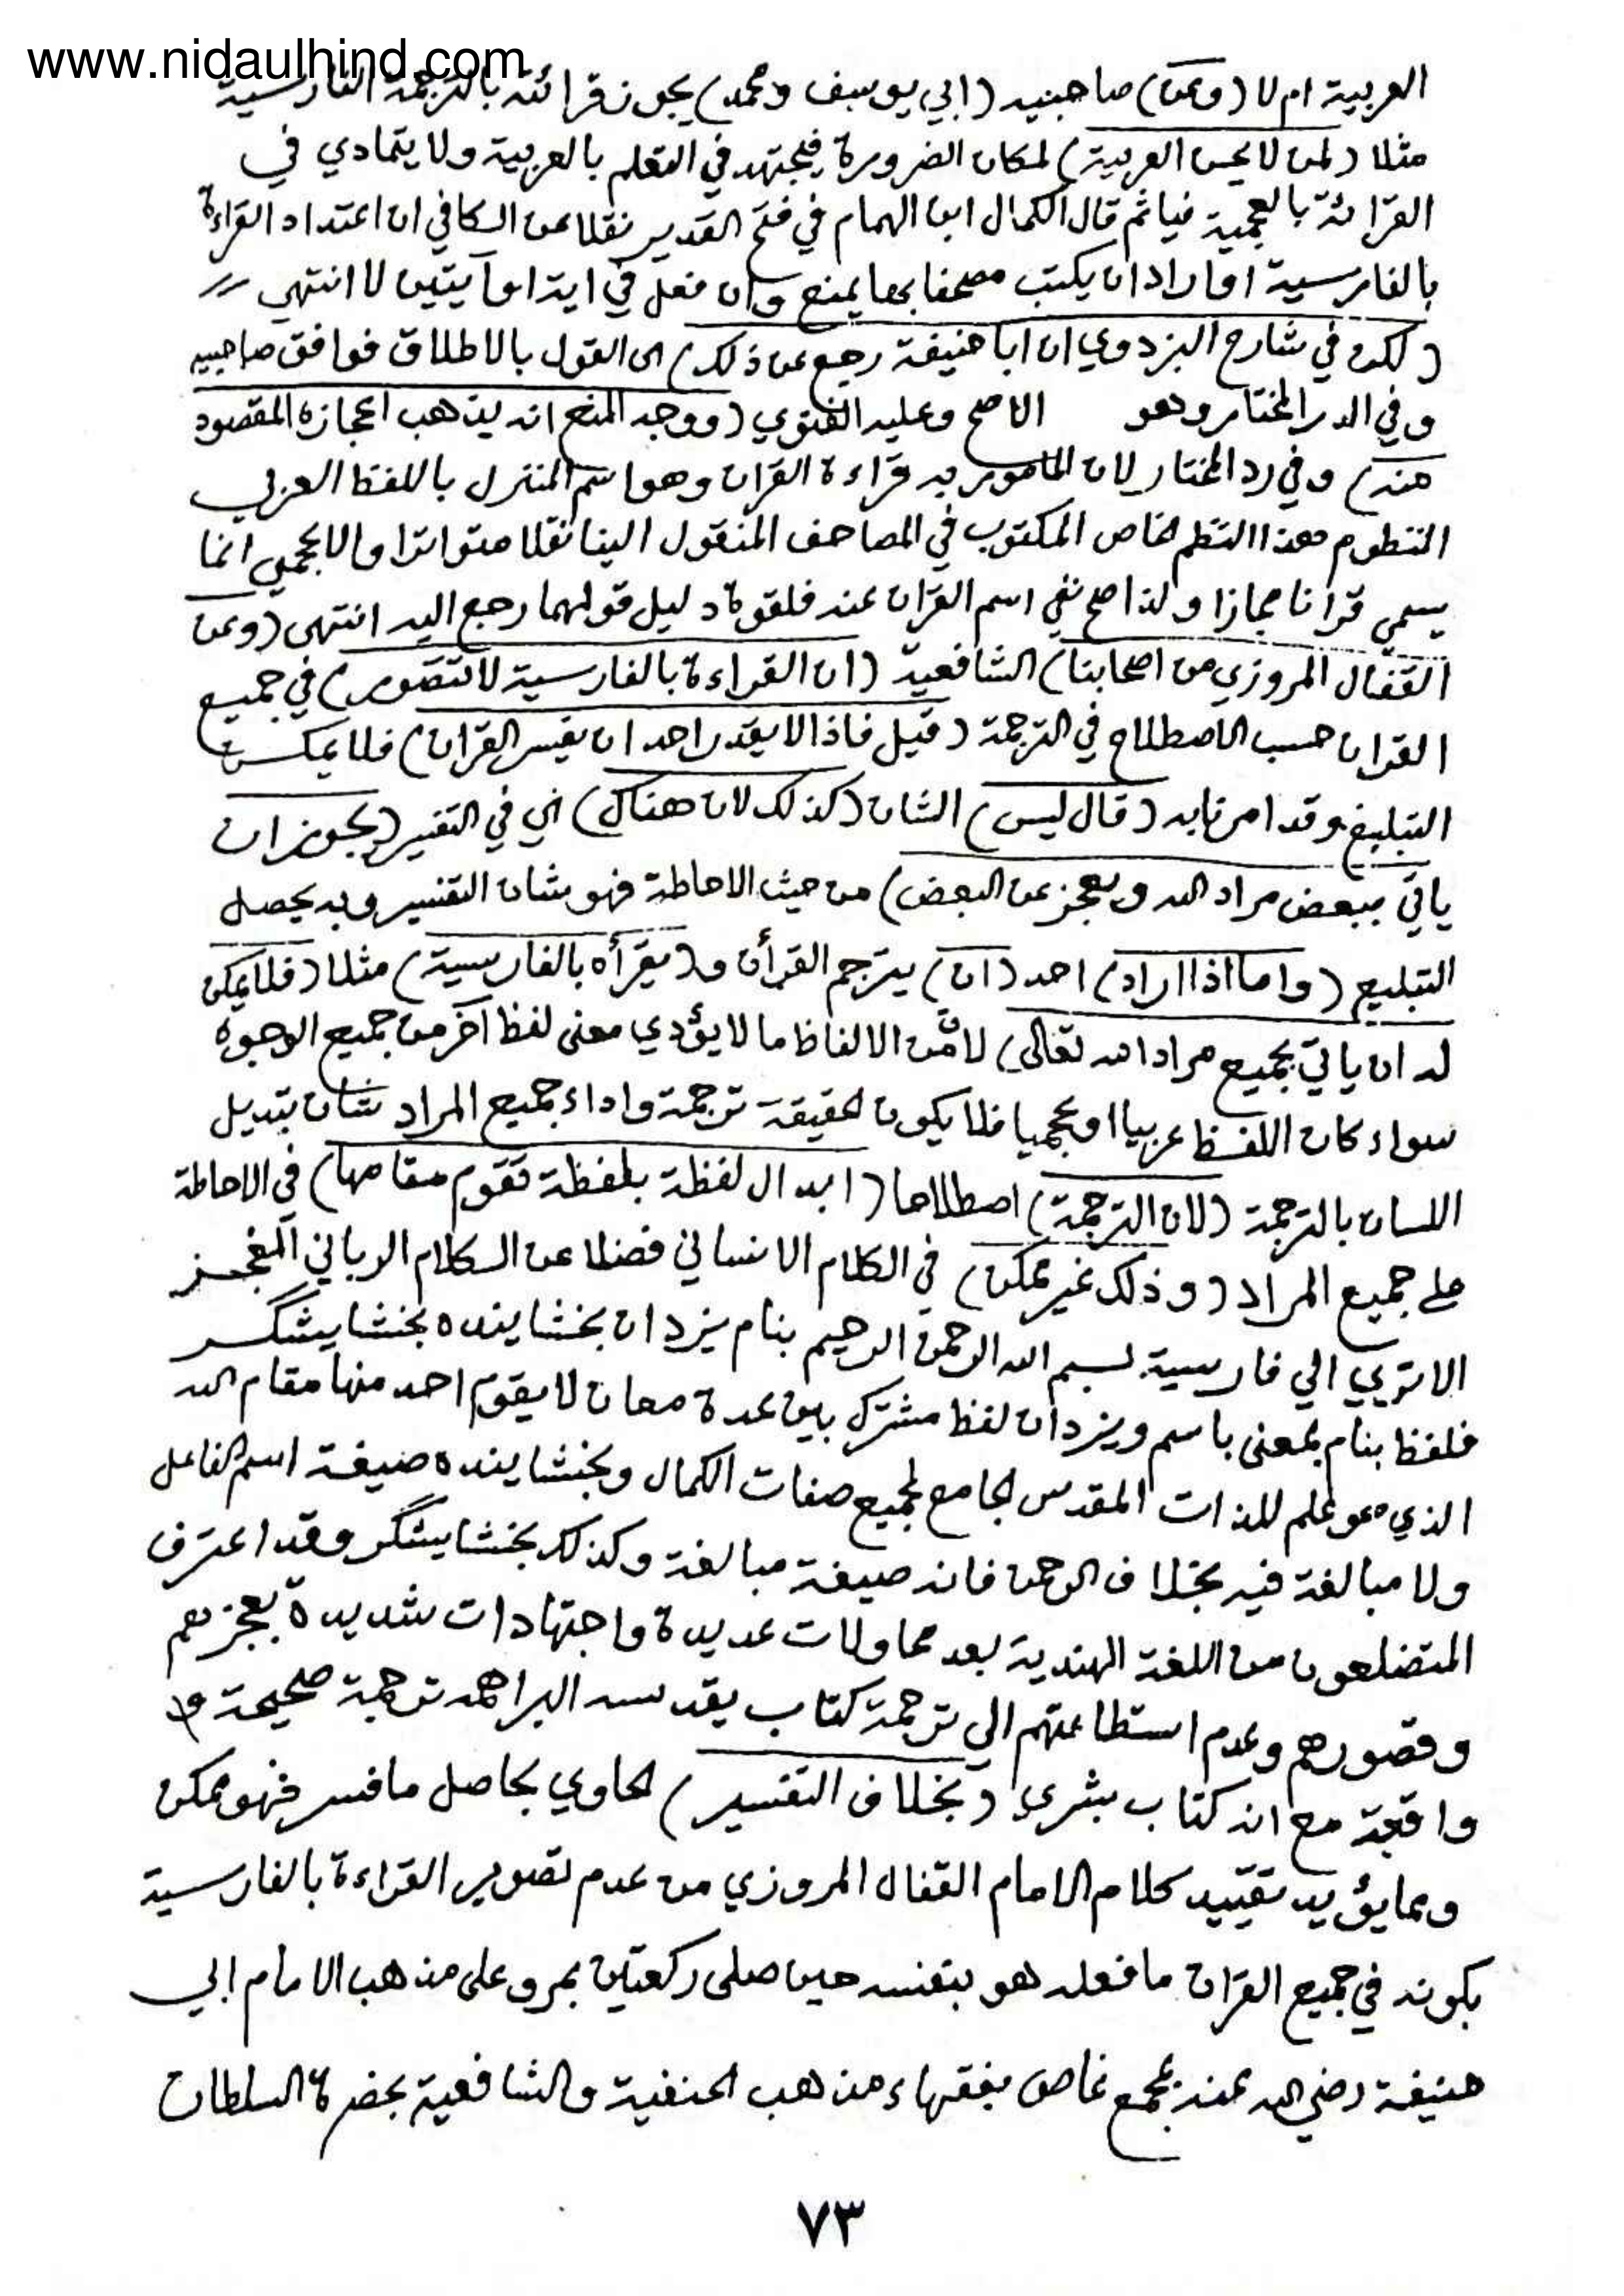 www.nidaulhind.com
العربية ام لا (وعن) صاحبيه (ابي يوسف ومحمد) يجوز قرائته بالترجمة الفارسية
مثلا (لمن لا يحسن العربية) لمكان الضرورة فيجتهد في التعلم بالعربية ولا يتمادي في
القرائة بالعجمية فياثم قال الكمال ابن الهمام في فتح القدير نقلا عن الكافي ان اعتداد القراءة
بالفارسية او اراد ان يكتب مصحفا بها يمنع وان فعل في اية او آيتين لا انتهي
(لكن في شارح البزدوي ان ابا حنيفة رجع عن ذلك) اى القول بالاطلاق فوافق صاحبيه
وفي الدر المختار وهو الاصح وعليه الفتوي (ووجه المنع انه يذهب اعجازه المقصود
منه) وفي رد المختار لان المامور به قراءة القران وهو اسم المنزل باللفظ العربي
المنظوم هذا النظم الخاص المكتوب في المصاحف المنقول الينا نقلا متواترا والاعجمي انما
يسمي قرانا مجازا ولذا صح نفي اسم القران عنه فلقوة دليل قولهما رجع اليه انتهى (وعن
القفال المروزي من اصحابنا) الشافعية (ان القراءة بالفارسية لا تتصور) في جميع
القران حسب الاصطلاح في الترجمة (قيل فاذا لا يقدر احد ان يفسر القران) فلا يمكن
التبليغ وقد امرنا به (قال ليس) الشان (كذلك لان هناك) اي في التفسير (يجوز ان
ياتي ببعض مراد الله ويعجز عن البعض) من حيث الاحاطة فهو شان التفسير وبه يحصل
التبليغ (واما اذا اراد) احد (ان) يترجم القرأن و(يقرأه بالفارسية) مثلا (فلا يمكن
له ان ياتي بجميع مراد الله تعالى) لان من الالفاظ ما لا يؤدي معنى لفظ آخر من جميع الوجوه
سواء كان اللفظ عربيا او عجميا فلا يكون حقيقة ترجمة واداء جميع المراد شان تبديل
اللسان بالترجمة (لان الترجمة) اصطلاحا (ابدال لفظة بلفظة تقوم مقامها) في الاحاطة
على جميع المراد (وذلك غير ممكن) في الكلام الانساني فضلا عن الكلام الرباني المعجز
الا تري الي فارسية بسم الله الرحمن الرحيم بنام يزدان بخشاينده بخشايشگر
فلفظ بنام بمعنى باسم ويزدان لفظ مشترك بين عدة معان لا يقوم احد منها مقام الله
الذي هو علم للذات المقدس الجامع لجميع صفات الكمال وبخشاينده صيغة اسم الفاعل
ولا مبالغة فيه بخلاف الرحمن فانه صيغة مبالغة وكذلك بخشايشگر وقد اعترف
المتضلعون من اللغة الهندية بعد محاولات عديدة واجتهادات شديدة بعجزهم
وقصورهم وعدم استطاعتهم الي ترجمة كتاب يقدسه البراهمه ترجمة صحيحة
واقعة مع انه كتاب بشري (بخلاف التفسير) الحاوي بحاصل ما فسر فهو ممكن
ومما يؤيد تقييد كلام الامام القفال المروزي من عدم تصوير القراءة بالفارسية
بكونه في جميع القران ما فعله هو بنفسه حين صلى ركعتين بمرو على مذهب الامام ابي
حنيفة رضي الله عنه بمجمع غاص بفقهاء مذهب الحنفية والشافعية بحضرة السلطان
٧٣